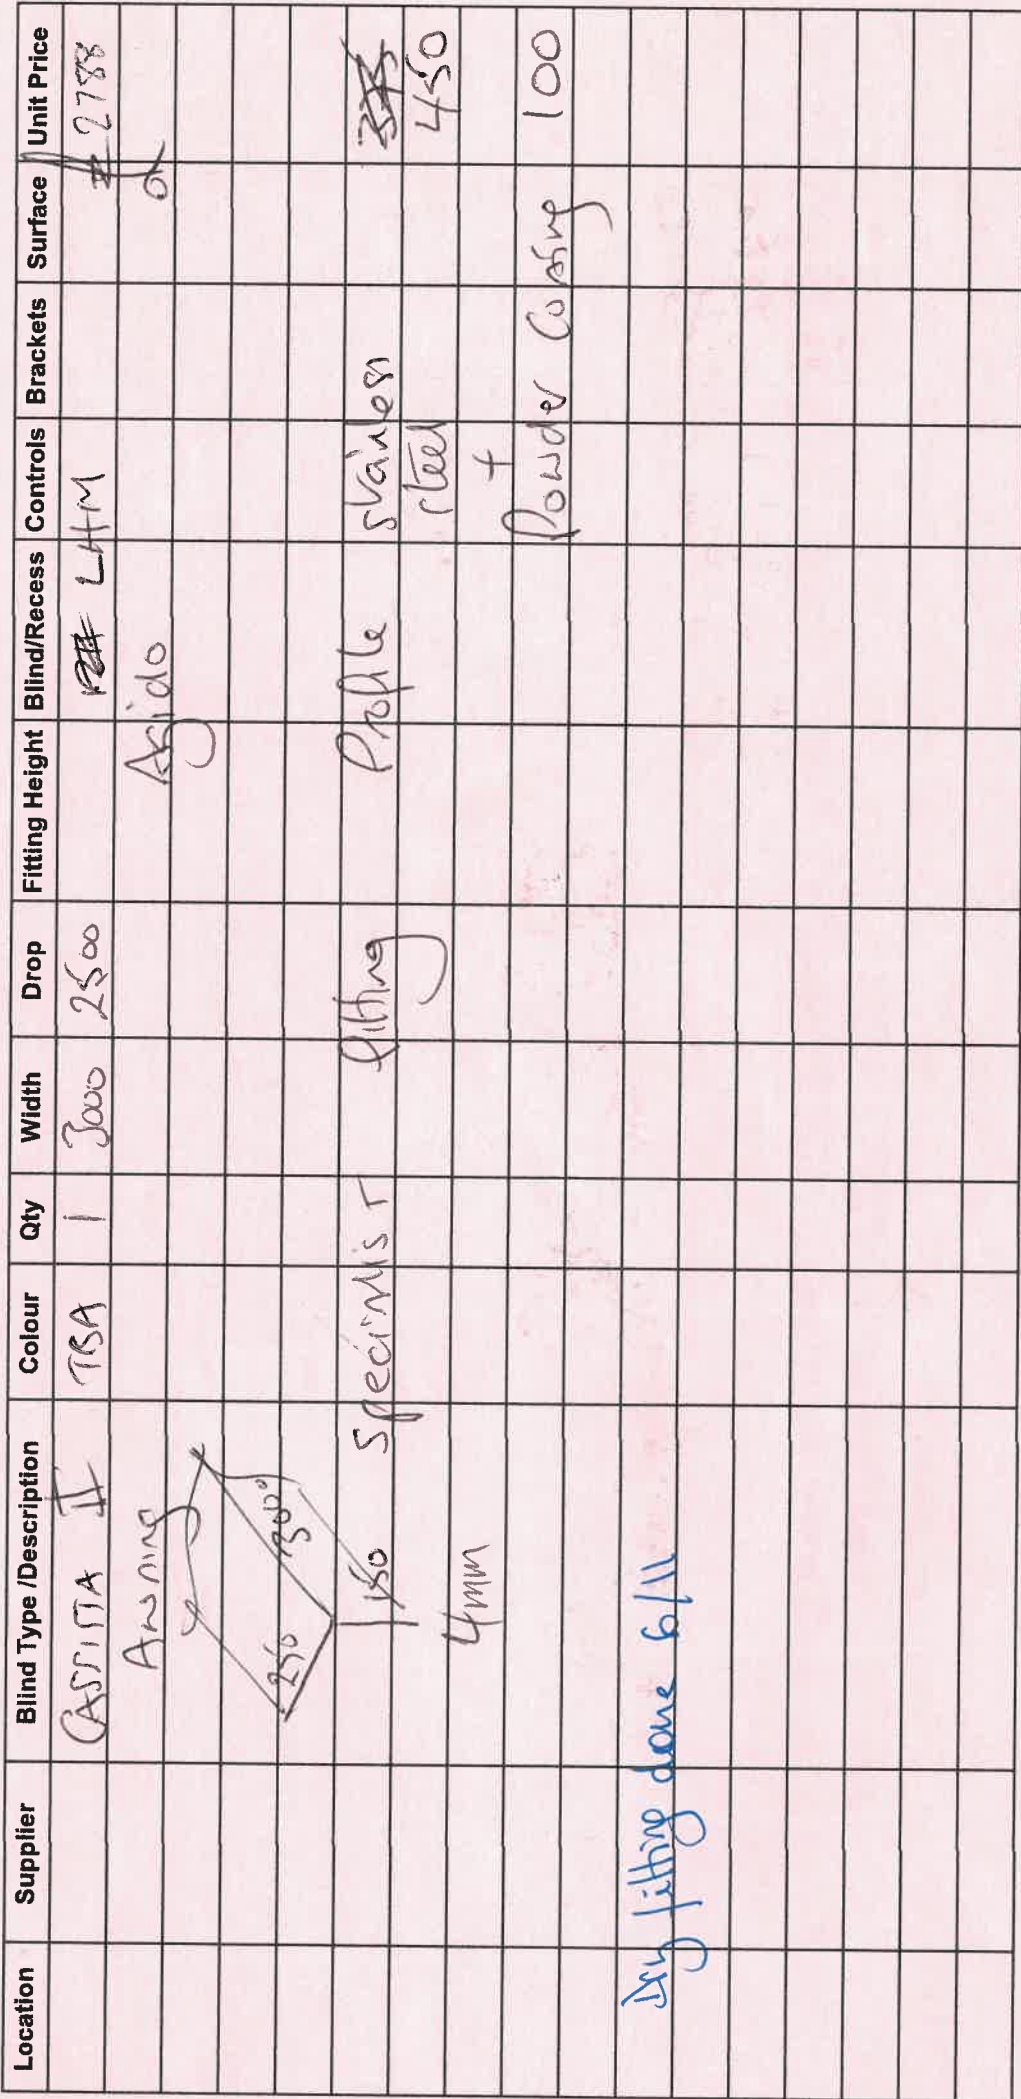 Location Supplier Blind Type /Description Colour Qty Width Drop Fitting Height Blind/Recess Controls Brackets Surface Unit Price
CASSITTA II TBA 1 3000 2500 LHM 2788
Awning Asjdo or
250 300°
150 Specialist fitting Profile stainless
steel 450
4mm +
Powder Coating 100
Dry fitting done 6/11